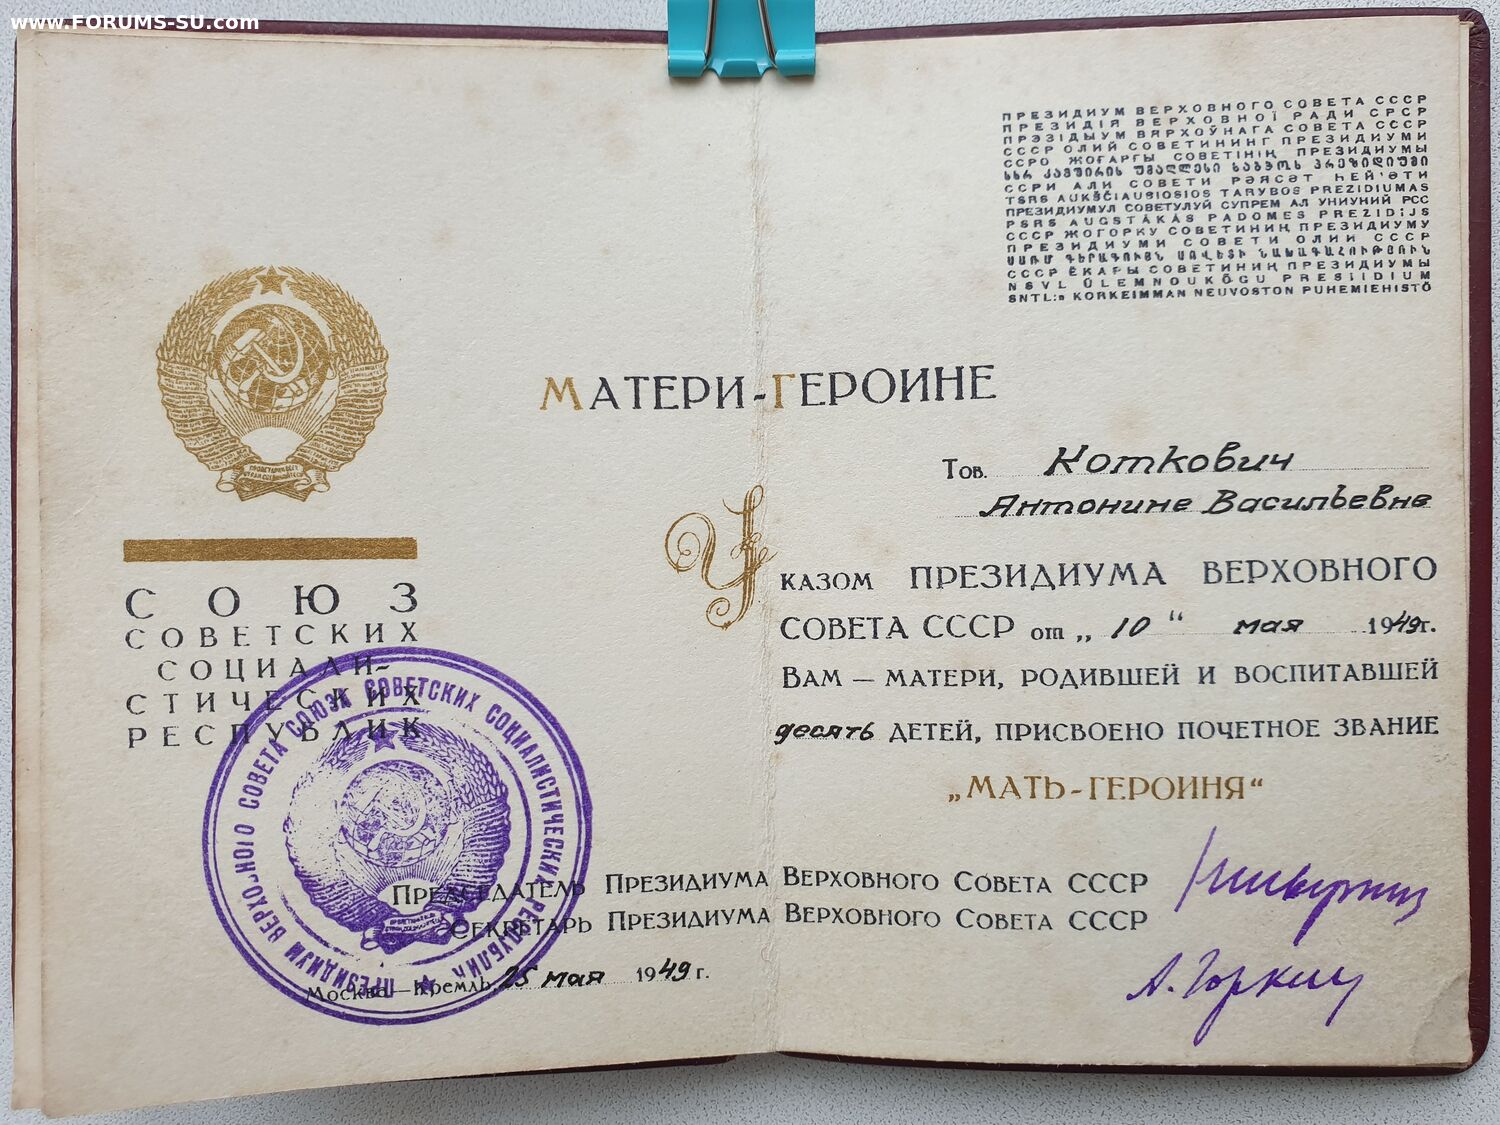 www.FORUMS-SU.com
ПРЕЗИДИУМ ВЕРХОВНОГО СОВЕТА СССР
ПРЕЗИДІЯ ВЕРХОВНОЇ РАДИ СРСР
ПРЭЗІДЫУМ ВЯРХОЎНАГА СОВЕТА СССР
СССР ОЛИЙ СОВЕТИНИНГ ПРЕЗИДИУМИ
ССРО ЖОҒАРҒЫ СОВЕТІНІҢ ПРЕЗИДИУМЫ
სსრ კავშირის უმაღლესი საბჭოს პრეზიდიუმი
ССРИ АЛИ СОВЕТИ РӘЯСӘТ ҺЕЙ'ӘТИ
TSRS AUKŠČIAUSIOSIOS TARYBOS PREZIDIUMAS
ПРЕЗИДИУМУЛ СОВЕТУЛУЙ СУПРЕМ АЛ УНИУНИЙ РСС
PSRS AUGSTĀKĀS PADOMES PREZIDIJS
СССР ЖОГОРКУ СОВЕТИНИҢ ПРЕЗИДИУМУ
ПРЕЗИДИУМИ СОВЕТИ ОЛИИ СССР
ՍՍՌՄ ԳԵՐԱԳՈՒՅՆ ՍՈՎԵՏԻ ՆԱԽԱԳԱՀՈՒԹՅՈՒՆ
СССР ЁКАРЫ СОВЕТИНИҢ ПРЕЗИДИУМЫ
NSVL ÜLEMNÕUKOGU PRESIIDIUM
SNTL:n KORKEIMMAN NEUVOSTON PUHEMIEHISTÖ
МАТЕРИ-ГЕРОИНЕ
Тов. Коткович
Антонине Васильевне
Указом ПРЕЗИДИУМА ВЕРХОВНОГО
СОВЕТА СССР от „ 10 “ мая 1949г.
Вам — матери, родившей и воспитавшей
десять детей, присвоено почетное звание
„МАТЬ-ГЕРОИНЯ“
СОЮЗ
СОВЕТСКИХ
СОЦИАЛИ-
СТИЧЕСКИХ
РЕСПУБЛИК
ПРЕЗИДИУМ ВЕРХОВНОГО СОВЕТА СОЮЗА СОВЕТСКИХ СОЦИАЛИСТИЧЕСКИХ РЕСПУБЛИК
Председатель Президиума Верховного Совета СССР
Секретарь Президиума Верховного Совета СССР
А. Горкин
Москва — Кремль, 25 мая 1949 г.